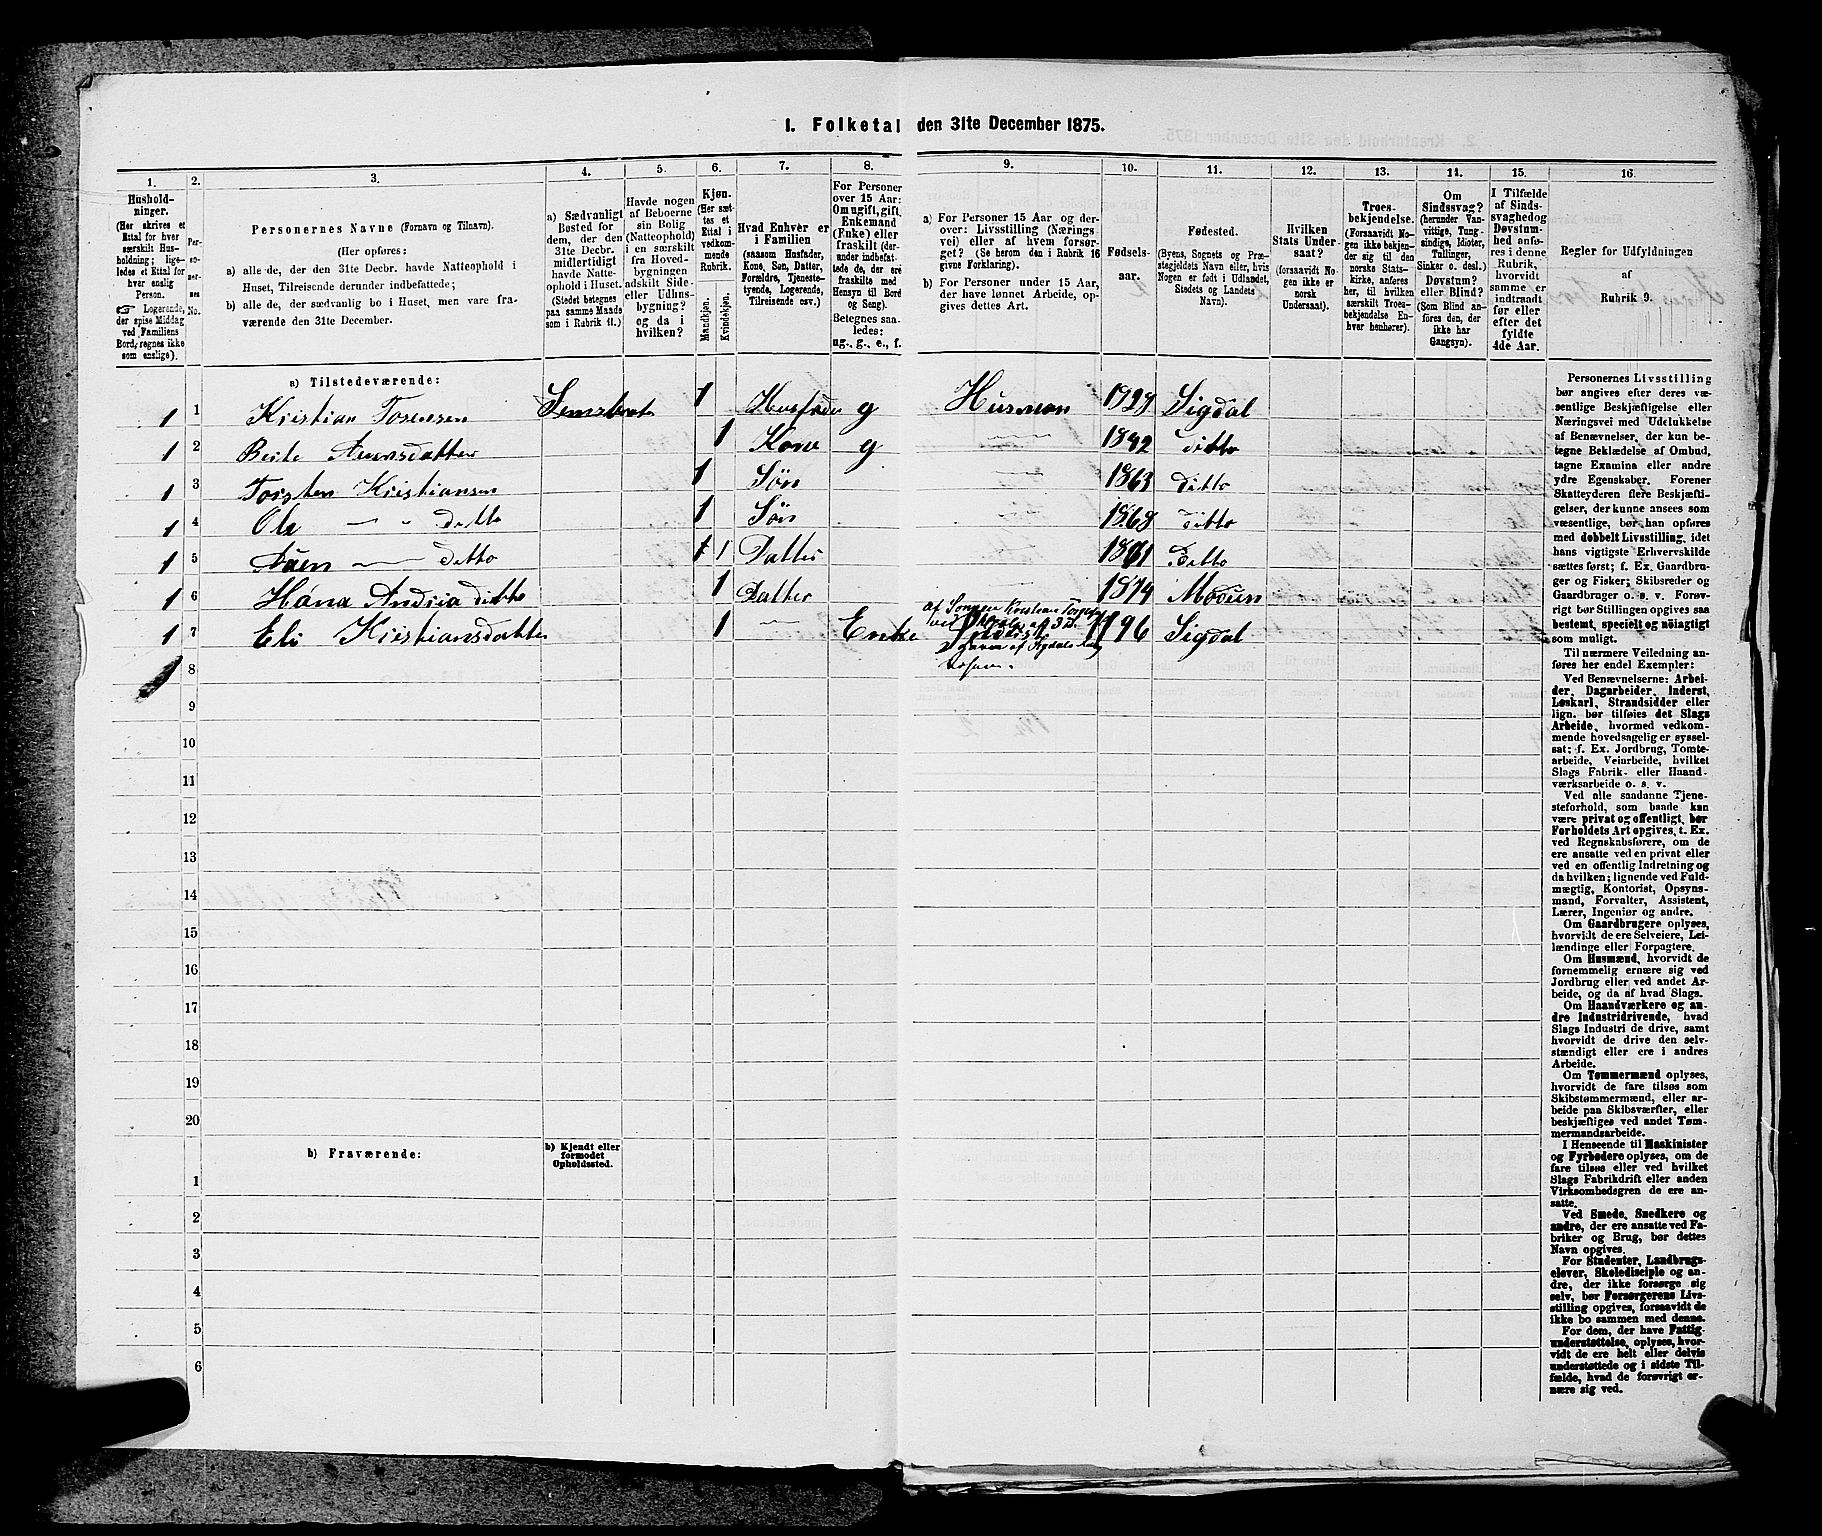 1. Folketal den 31te December 1875.
1. 2. 3. 4. 5. 6. 7. 8. 9. 10. 11. 12. 13. 14. 15. 16.
Hushold-
ninger.
(Her skrives et
Ettal for hver
særskilt Hus-
holdning; lige-
ledes et Ettal for
hver enslig
Person.
☞ Logerende,
der spise Middag
ved Familiens
Bord, regnes ikke
som enslige).
Per-
so-
ner-
nes
No.
Personernes Navne (Fornavn og Tilnavn).
(Her opføres:
a) alle de, der den 31te Decbr. havde Natteophold i
Huset, Tilreisende derunder indbefattede;
b) alle de, der sædvanlig bo i Huset, men vare fra-
værende den 31te December.
a) Sædvanligt
Bosted for
dem, der den
31te Decbr.
midlertidigt
havde Natte-
ophold i Huset.
(Stedet betegnes
paa samme Maade
som i Rubrik 11.)
Havde nogen
af Beboerne
sin Bolig
(Natteophold)
i en særskilt
fra Hoved-
bygningen
adskilt Side-
eller Udhus-
bygning?
og da i
hvilken?
Kjøn.
(Her sæt-
tes et
Ettal i
vedkom-
mende
Rubrik.
Mandkjøn.
Kvindekjøn.
Hvad Enhver er
i Familien
(saasom Husfader,
Kone, Søn, Datter,
Forældre, Tjeneste-
tyende, Logerende,
Tilreisende osv.)
For Personer
over 15 Aar:
Om ugift, gift,
Enkemand
(Enke) eller
fraskilt (der-
under indbefat-
tede de, der ere
fraskilte med
Hensyn til Bord
og Seng.)
Betegnes saa-
ledes:
ug., g., e., f.
a) For Personer 15 Aar og der-
over: Livsstilling (Nærings-
vei) eller af hvem forsør-
get? (Se herom den i Rubrik 16
givne Forklaring).
b) For Personer under 15 Aar,
der have lønnet Arbeide, op-
gives dettes Art.
Fødsels-
aar.
Fødested.
(Byens, Sognets og Præ-
stegjeldets Navn eller, hvis
Nogen er født i Udlandet,
Stedets og Landets
Navn).
Hvilken
Stats Under-
saat?
(forsaavidt No-
gen ikke er
norsk
Undersaat).
Troes-
bekjendelse.
(Forsaavidt No-
gen ikke bekjen-
der sig til den
norske Stats-
kirke, anføres
her, til hvilken
særskilt Troes-
bekjendelse En-
hver henhører).
Om
Sindssvag?
(herunder Van-
vittige, Tung-
sindige, Idioter,
Tullinger,
Sinker o. desl.)
Døvstum?
eller Blind?
(Som Blind an-
føres den, der
ikke har
Gangsyn).
I Tilfælde
af Sinds-
svaghed og
Døvstum-
hed anfø-
res i denne
Rubrik,
hvorvidt
samme er
indtraadt
før eller
efter det
fyldte
4de Aar.
Regler for Udfyldningen
af
Rubrik 9.
a) Tilstedeværende:
1 1 Kristian Torsensen 1 Husfader g Husman 1829 Sigdal
1 2 Berte 1 Kone g 1842 ditto
1 3 Torsten Kristiansen 1 Søn 1863 ditto
1 4 Ole — " ditto 1 Søn 1868 ditto
1 5 — ditto 1 Datter ditto
1 6 Andria ditto 1 Datter 1874 Modum
1 7 Eli Kristiansdatter 1 Enke 1796 Sigdal
8
9
10
11
12
13
14
15
16
17
18
19
20
b) Fraværende:
b) Kjendt eller
formodet
Opholdssted.
1
2
3
4
5
6
Personernes Livsstilling
bør angives efter deres væ-
sentlige Beskjæftigelse eller
Næringsvei med Udelukkelse
af Benævnelser, der kun be-
tegne Beklædelse af Ombud,
tagne Examina eller andre
ydre Egenskaber. Forener
Skatteyderen flere Beskjæfti-
gelser, der kunne ansees som
væsentlige, bør han opføres
med dobbelt Livsstilling, idet
hans vigtigste Erhvervskilde
sættes først; f. Ex. Gaardbru-
ger og Fisker; Skibsreder og
Gaardbruger o. s. v. Forøv-
rigt bør Stillingen opgives saa
bestemt, specielt og nøiagtigt
som muligt.
Til nærmere Veiledning an-
føres her endel Exempler:
Ved Benævnelserne: Arbei-
der, Dagarbeider, Inderst,
Løskarl, Strandsidder eller
lign. bør tilføies det Slags
Arbeide, hvormed vedkom-
mende hovedsagelig er syssel-
sat; f. Ex. Jordbrug, Tomte-
arbeide, Veiarbeide, hvilket
Slags Fabrik- eller Haand-
værksarbeide o. s. v.
Ved alle saadanne Tjene-
steforhold, som baade kan
være privat og offentligt, bør
Forholdets Art opgives, t. Ex.
ved Regnskabsførere, om de
ere ansatte ved en privat eller
ved en offentlig Indretning og
da hvilken; lignende ved Fuld-
mægtig, Kontorist, Opsyns-
mand, Forvalter, Assistent,
Lærer, Ingeniør og andre.
Om Gaardbrugere oplyses,
hvorvidt de ere Selveiere, Lei-
lændinge eller Forpagtere.
Om Husmænd, hvorvidt de
fornemmelig ernære sig ved
Jordbrug eller ved andet Ar-
beide, og da af hvad Slags.
Om Haandværkere og an-
dre Industridrivende, hvad
Slags Industri de drive, samt
hvorvidt de drive den selv-
stændigt eller ere i andres
Arbeide.
Om Tømmermænd oplyses,
hvorvidt de fare tilsøs som
Skibstømmermænd, eller ar-
beide paa Skibsværfter, eller
beskjæftiges ved andet Tøm-
mermandsarbeide.
I Henseende til Maskinister
og Fyrbødere oplyses, om de
fare tilsøs eller ved hvilket
Slags Fabrikdrift eller anden
Virksombedsgren de ere an-
satte.
Ved Smede, Snedkere og
andre, der ere ansatte ved Fa-
briker og Brug, bør dettes
Navn opgives.
For Studenter, Landbrugs-
elever, Skoledisciple og an-
dre, der ikke forsørge sig
selv, bør Forsørgerens Livs-
stilling opgives, forsaavidt de
ikke bo sammen med denne.
For dem, der have Fattig-
understøttelse, oplyses, hvor-
vidt de ere helt eller delvis
understøttede og i sidste Til-
fælde, hvad de forøvrigt er-
nære sig ved.